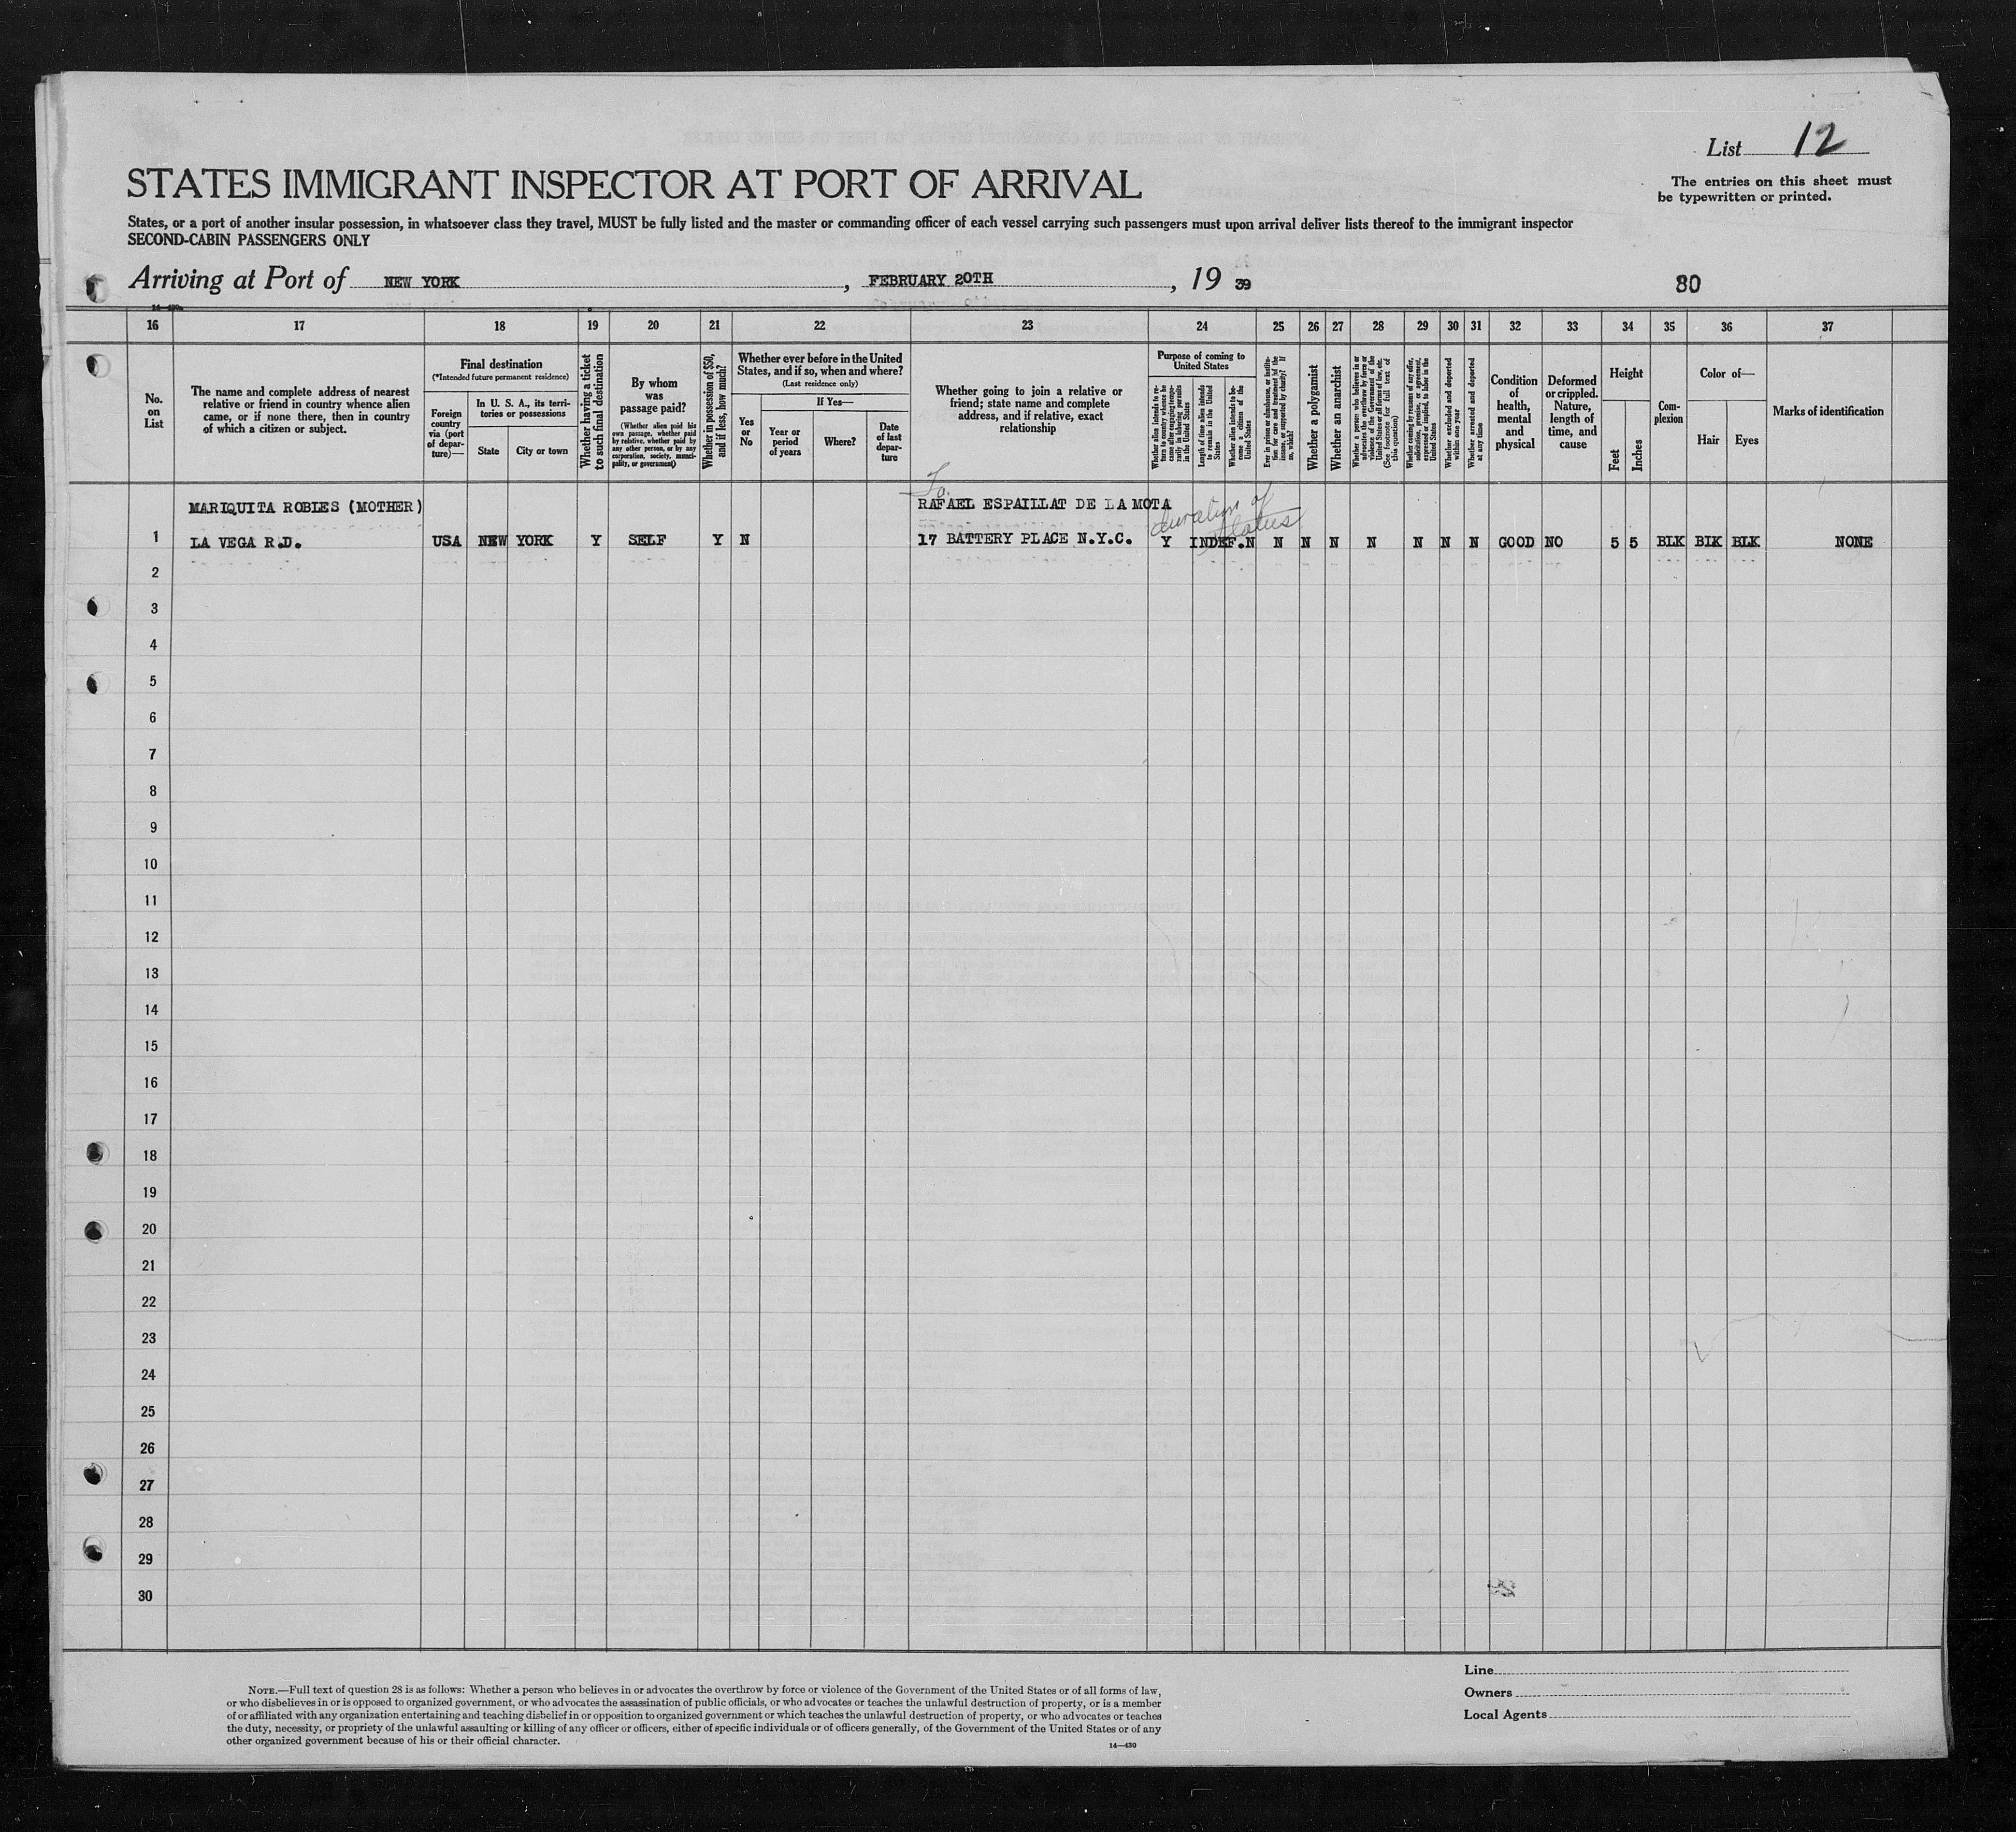 List 12
The entries on this sheet must
be typewritten or printed.
STATES IMMIGRANT INSPECTOR AT PORT OF ARRIVAL
States, or a port of another insular possession, in whatsoever class they travel, MUST be fully listed and the master or commanding officer of each vessel carrying such passengers must upon arrival deliver lists thereof to the immigrant inspector
SECOND-CABIN PASSENGERS ONLY
Arriving at Port of NEW YORK, FEBRUARY 20TH, 19 39
80
14-430
16 17 18 19 20 21 22 23 24 25 26 27 28 29 30 31 32 33 34 35 36 37
No.
on
List
The name and complete address of nearest
relative or friend in country whence alien
came, or if none there, then in country
of which a citizen or subject.
Final destination
(*Intended future permanent residence)
Foreign
country
via (port
of depar-
ture)—
In U. S. A., its terri-
tories or possessions
State
City or town
Whether having a ticket
to such final destination
By whom
was
passage paid?
(Whether alien paid his
own passage, whether paid
by relative, whether paid by
any other person, or by any
corporation, society, munici-
pality, or government)
Whether in possession of $50,
and if less, how much?
Whether ever before in the United
States, and if so, when and where?
(Last residence only)
Yes
or
No
If Yes—
Year or
period
of years
Where?
Date
of last
depar-
ture
Whether going to join a relative or
friend; state name and complete
address, and if relative, exact
relationship
Purpose of coming to
United States
Whether alien intends to re-
turn to country whence he
came after engaging tempo-
rarily in laboring pursuits
in the United States
Length of time alien intends
to remain in the United
States
Whether alien intends to be-
come a citizen of the
United States
Ever in prison or almshouse, or institu-
tion for care and treatment of the
insane, or supported by charity? If
so, which?
Whether a polygamist
Whether an anarchist
Whether a person who believes in or
advocates the overthrow by force or
violence of the Government of the
United States or all forms of law, etc.
(See footnote for full text of
this question)
Whether coming by reason of any offer,
solicitation, promise, or agreement,
expressed or implied, to labor in the
United States
Whether excluded and deported
within one year
Whether arrested and deported
at any time
Condition
of
health,
mental
and
physical
Deformed
or crippled.
Nature,
length of
time, and
cause
Height
Feet
Inches
Com-
plexion
Color of—
Hair
Eyes
Marks of identification
To
MARIQUITA ROBLES (MOTHER) RAFAEL ESPAILLAT DE LA MOTA
duration of
status
1 LA VEGA R.D. USA NEW YORK Y SELF Y N 17 BATTERY PLACE N.Y.C. Y INDEF. N N N N N N N N GOOD NO 5 5 BLK BLK BLK NONE
2
3
4
5
6
7
8
9
10
11
12
13
14
15
16
17
18
19
20
21
22
23
24
25
26
27
28
29
30
NOTE.—Full text of question 28 is as follows: Whether a person who believes in or advocates the overthrow by force or violence of the Government of the United States or of all forms of law,
or who disbelieves in or is opposed to organized government, or who advocates the assassination of public officials, or who advocates or teaches the unlawful destruction of property, or is a member
of or affiliated with any organization entertaining and teaching disbelief in or opposition to organized government or which teaches the unlawful destruction of property, or who advocates or teaches
the duty, necessity, or propriety of the unlawful assaulting or killing of any officer or officers, either of specific individuals or of officers generally, of the Government of the United States or of any
other organized government because of his or their official character.
14—430
Line
Owners
Local Agents